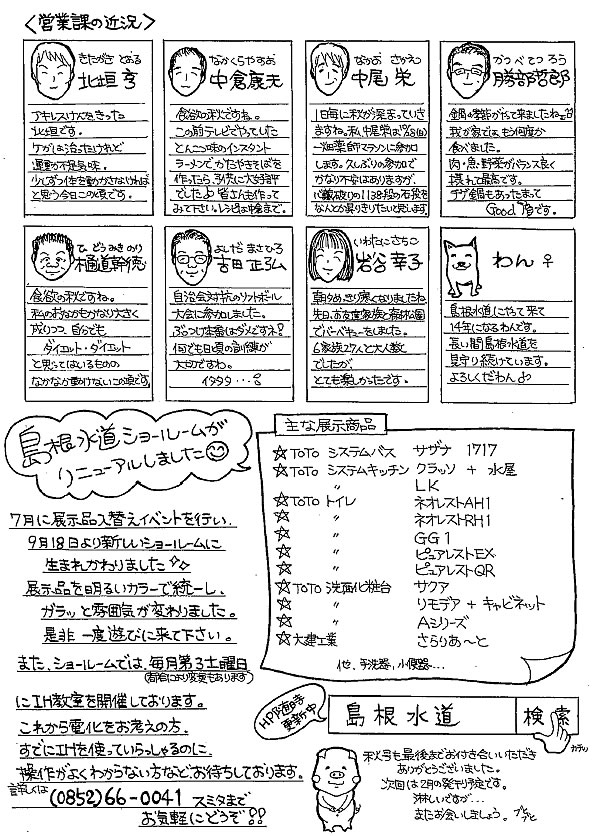 〈営業課の近況〉
きたがき とおる
北垣 亨
アキレスけんをきった
北垣です。
ケガは治ったけれど
運動不足気味。
少しずつ体を動かさなければ
と思う今日この頃です。
なかくらやすお
中倉康夫
食欲の秋ですね。
この前テレビでやっていた
とんこつ味のインスタント
ラーメンでかたやきそばを
作ったら、子供に大好評
でした♪ 皆さんも作って
みて下さい。レシピは中倉まで。
なかお さかえ
中尾 栄
1日毎に秋が深まっていき
ますね。私、中尾栄は
一畑薬師マラソンに参加
します。久しぶりの参加で
かなり不安はありますが、
の1138段の石段を
なんとか昇りきりたいと思います。
かつべ てつろう
勝部哲郎
鍋の季節がやって来ましたね。
我が家では、もう何度か
食べました。
肉・魚・野菜がバランス良く
摂れて最高です。
チゲ鍋もあったまって
Good!!です。
ひどうみきのり
樋道幹徳
食欲の秋ですね。
私のおなかもかなり大きく
成りつつ、自らでも
ダイエット・ダイエット
と思ってはいるものの
なかなか動けないこの頃です。
よしだ まさひろ
吉田 正弘
自治会対抗のソフトボール
大会に参加しました。
ぶっつけ本番はダメですネ!
何でも日頃の訓練が
大切ですね。
イタタタ…
いわたにさちこ
岩谷 幸子
朝夕めっきり寒くなりましたね
先日、お友達家族と森林公園
でバーベキューをしました。
6家族27人と大人数
でしたが、
とても楽しかったです。
わん♀
島根水道にやって来て
14年になるわんです。
長い間島根水道を
見守り続けています。
よろしくだわん♪
島根水道ショールームが
リニューアルしました
7月に展示品入替えイベントを行い、
9月18日より新しいショールームに
生まれかわりました
展示品を明るいカラーで統一し、
ガラッと雰囲気が変わりました。
是非一度遊びに来て下さい。
また、ショールームでは、毎月第3土曜日
(都合により変更もあります)
にIH教室を開催しております。
これから電化をお考えの方、
すでにIHを使っていらっしゃるのに、
操作がよくわからない方など、お待ちしております。
詳しくは (0852)66-0041 スミタまで
お気軽にどうぞ!!
主な展示商品
☆TOTO システムバス サザナ 1717
☆TOTO システムキッチン クラッソ + 水屋
☆ 〃 LK
☆TOTO トイレ ネオレストAH1
☆ 〃 ネオレストRH1
☆ 〃 GG1
☆ 〃 ピュアレストEX
☆ 〃 ピュアレストQR
☆TOTO 洗面化粧台 サクア
☆ 〃 リモデア + キャビネット
☆ 〃 Aシリーズ
☆大建工業 さらりあーと
他、手洗器、小便器…
HP随時更新中
島根水道
検索
カチッ
秋号も最後までお付き合いいただき
ありがとうございました。
次回は2月の発刊予定です。
淋しいですが…
またお会いしましょう。